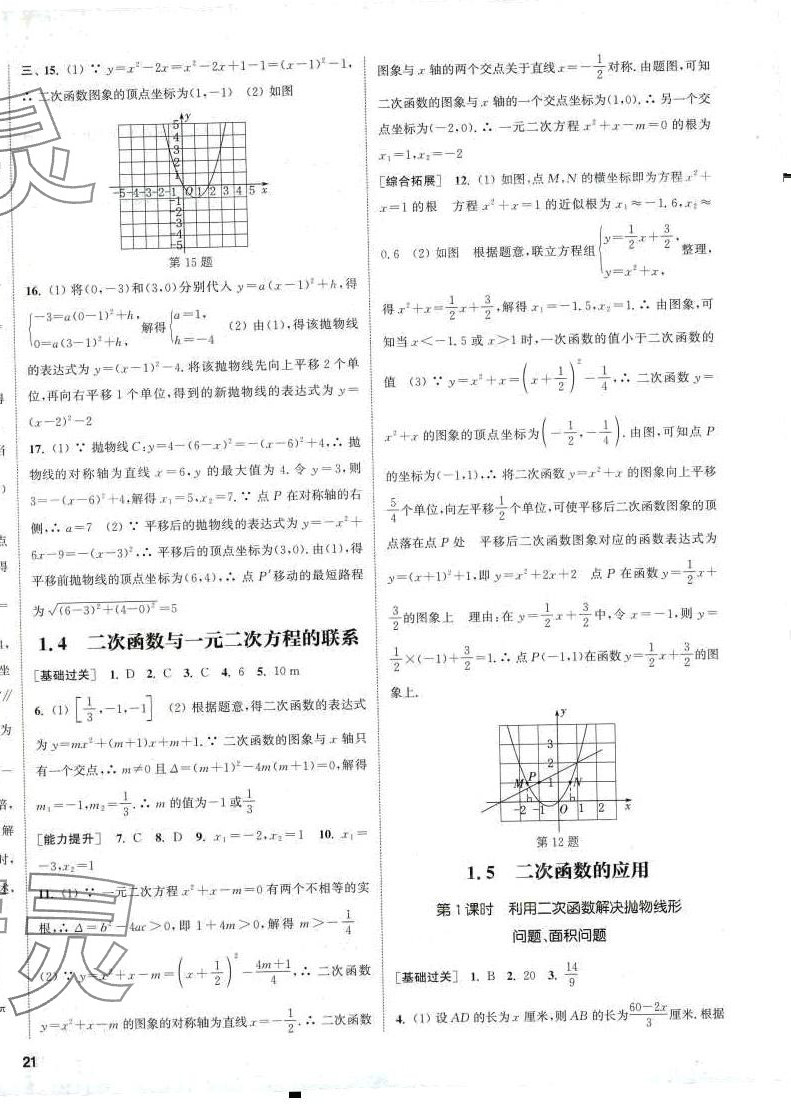 三、15. (1) ∵ y=x²-2x=x²-2x+1-1=(x-1)²-1,
∴ 二次函数图象的顶点坐标为(1,-1) (2) 如图
y
5
4
3
2
1
-5-4-3-2-1 O 1 2 3 4 5 x
-1
-2
-3
-4
-5
第 15 题
16. (1) 将(0,-3)和(3,0)分别代入 y=a(x-1)²+h,得
{-3=a(0-1)²+h, 0=a(3-1)²+h, 解得{a=1, h=-4 (2) 由(1),得该抛物线
的表达式为 y=(x-1)²-4. 将该抛物线先向上平移 2 个单
位,再向右平移 1 个单位,得到的新抛物线的表达式为 y=
(x-2)²-2
17. (1) ∵ 抛物线 C:y=4-(6-x)²=-(x-6)²+4,∴ 抛
物线的对称轴为直线 x=6,y 的最大值为 4. 令 y=3,则
3=-(x-6)²+4,解得 x₁=5,x₂=7. ∵ 点 P 在对称轴的右
侧,∴ a=7 (2) ∵ 平移后的抛物线的表达式为 y=-x²+
6x-9=-(x-3)²,∴ 平移后的顶点坐标为(3,0). 由(1),得
平移前抛物线的顶点坐标为(6,4),∴ 点 P′移动的最短路程
为√((6-3)²+(4-0)²)=5
1.4 二次函数与一元二次方程的联系
[基础过关] 1. D 2. C 3. C 4. 6 5. 10 m
6. (1) [1/3,-1,-1] (2) 根据题意,得二次函数的表达式
为 y=mx²+(m+1)x+m+1. ∵ 二次函数的图象与 x 轴只
有一个交点,∴ m≠0 且 Δ=(m+1)²-4m(m+1)=0,解得
m₁=-1,m₂=1/3. ∴ m 的值为-1 或1/3
[能力提升] 7. C 8. D 9. x₁=-2,x₂=1 10. x₁=
-3,x₂=1
11. (1) ∵ 一元二次方程 x²+x-m=0 有两个不相等的实
根,∴ Δ=b²-4ac>0,即 1+4m>0,解得 m>-1/4
(2) ∵ y=x²+x-m=(x+1/2)²-(4m+1)/4,∴ 二次函数
y=x²+x-m 的图象的对称轴为直线 x=-1/2. ∴ 二次函数
21
图象与 x 轴的两个交点关于直线 x=-1/2对称. 由题图,可知
二次函数的图象与 x 轴的一个交点坐标为(1,0). ∴ 另一个交
点坐标为(-2,0). ∴ 一元二次方程 x²+x-m=0 的根为
x₁=1,x₂=-2
[综合拓展] 12. (1) 如图,点 M,N 的横坐标即为方程 x²+
x=1 的根 方程 x²+x=1 的近似根为 x₁≈-1.6,x₂≈
0.6 (2) 如图 根据题意,联立方程组{y=1/2x+3/2, y=x²+x, 整理,
得 x²+x=1/2x+3/2,解得 x₁=-1.5,x₂=1. ∴ 由图象,可
知当 x<-1.5 或 x>1 时,一次函数的值小于二次函数的
值 (3) ∵ y=x²+x=(x+1/2)²-1/4,∴ 二次函数 y=
x²+x 的图象的顶点坐标为(-1/2,-1/4). 由图,可知点 P
的坐标为(-1,1),∴ 将二次函数 y=x²+x 的图象向上平移
5/4个单位,向左平移1/2个单位,可使平移后二次函数图象的顶
点落在点 P 处 平移后二次函数图象对应的函数表达式为
y=(x+1)²+1,即 y=x²+2x+2 点 P 在函数 y=1/2x+
3/2的图象上 理由:在 y=1/2x+3/2中,令 x=-1,则 y=
1/2×(-1)+3/2=1. ∴ 点 P(-1,1)在函数 y=1/2x+3/2的图
象上.
y
3
2
M P N
-2 -1 O 1 2 x
第 12 题
1.5 二次函数的应用
第 1 课时 利用二次函数解决抛物线形
问题、面积问题
[基础过关] 1. B 2. 20 3. 14/9
4. (1) 设 AD 的长为 x 厘米,则 AB 的长为(60-2x)/3厘米. 根据